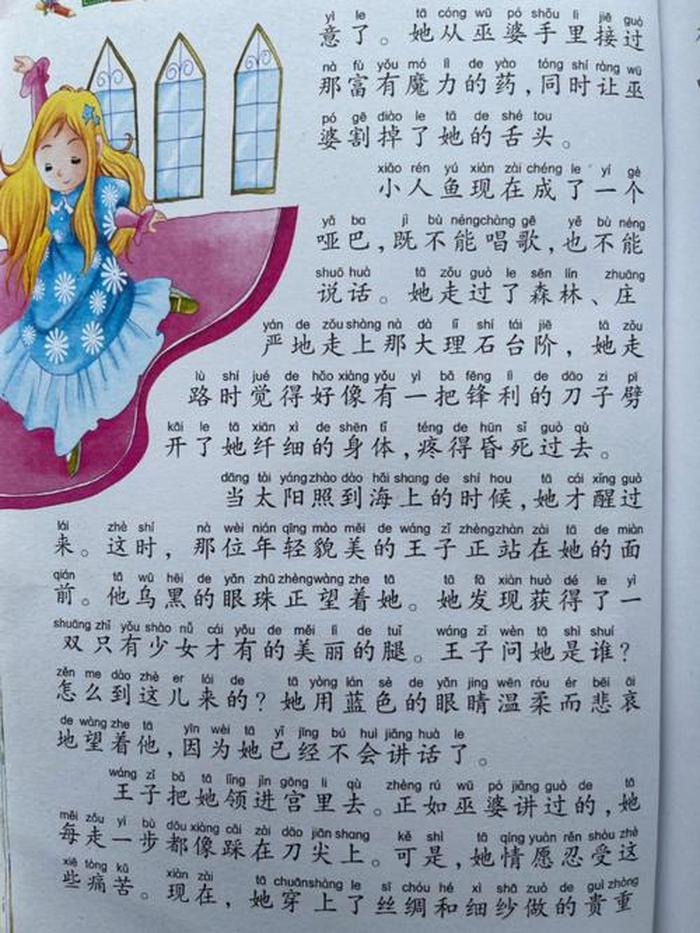 yì le tā cóng wū pó shǒu lǐ jiē guò
意了。她从巫婆手里接过
nà fù yǒu mó lì de yào tóng shí ràng wū
那富有魔力的药，同时让巫
pó gē diào le tā de shé tou
婆割掉了她的舌头。
xiǎo rén yú xiàn zài chéng le yí gè
小人鱼现在成了一个
yǎ ba jì bù néng chàng gē yě bù néng
哑巴，既不能唱歌，也不能
shuō huà tā zǒu guò le sēn lín zhuāng
说话。她走过了森林、庄
yán de zǒu shàng nà dà lǐ shí tái jiē tā zǒu
严地走上那大理石台阶，她走
lù shí jué de hǎo xiàng yǒu yì bǎ fēng lì de dāo zi pī
路时觉得好像有一把锋利的刀子劈
kāi le tā xiān xì de shēn tǐ téng de hūn sǐ guò qù
开了她纤细的身体，疼得昏死过去。
dāng tài yáng zhào dào hǎi shang de shí hou tā cái xǐng guò
当太阳照到海上的时候，她才醒过
lái zhè shí nà wèi nián qīng mào měi de wáng zǐ zhèng zhàn zài tā de miàn
来。这时，那位年轻貌美的王子正站在她的面
qián tā wū hēi de yǎn zhū zhèng wàng zhe tā tā fā xiàn huò dé le yì
前。他乌黑的眼珠正望着她。她发现获得了一
shuāng zhǐ yǒu shào nǚ cái yǒu de měi lì de tuǐ wáng zǐ wèn tā shì shuí
双只有少女才有的美丽的腿。王子问她是谁？
zěn me dào zhè er lái de tā yòng lán sè de yǎn jing wēn róu ér bēi āi
怎么到这儿来的？她用蓝色的眼睛温柔而悲哀
de wàng zhe tā yīn wèi tā yǐ jīng bú huì jiǎng huà le
地望着他，因为她已经不会讲话了。
wáng zǐ bǎ tā lǐng jìn gōng li qù zhèng rú wū pó jiǎng guò de tā
王子把她领进宫里去。正如巫婆讲过的，她
měi zǒu yí bù dōu xiàng cǎi zài dāo jiān shang kě shì tā qíng yuàn rěn shòu zhè
每走一步都像踩在刀尖上。可是，她情愿忍受这
xiē tòng kǔ xiàn zài tā chuān shàng le sī chóu hé xì shā zuò de guì zhòng
些痛苦。现在，她穿上了丝绸和细纱做的贵重